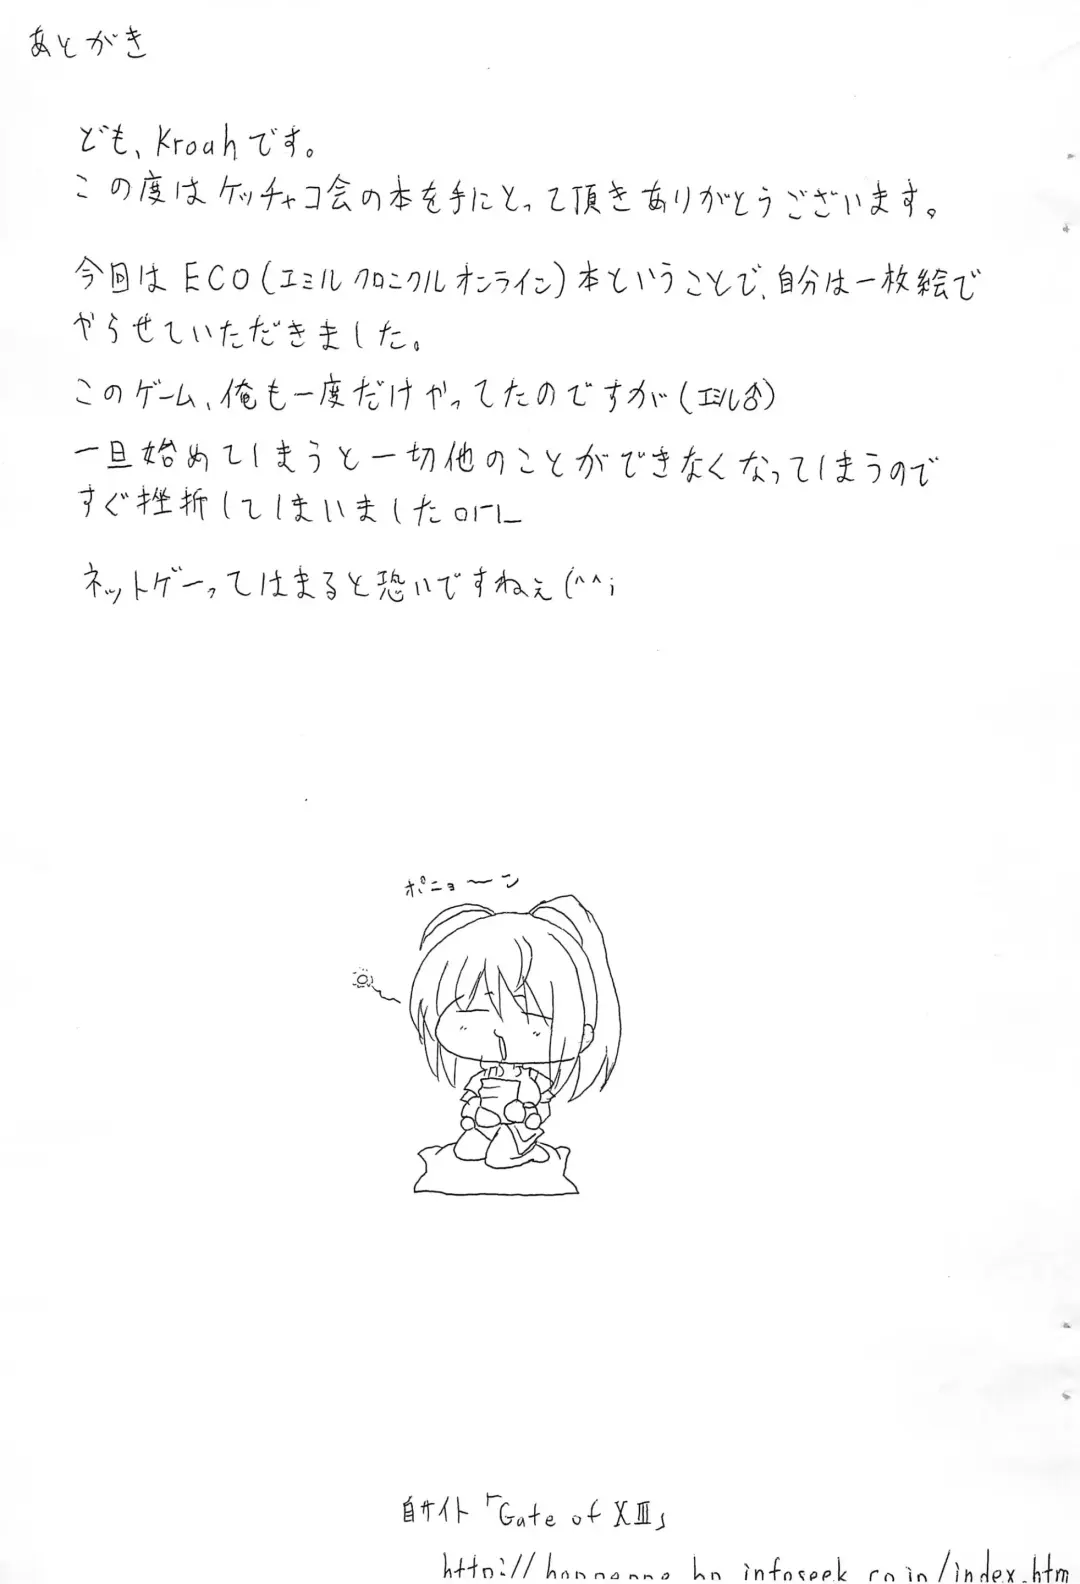 あとがき
ども、Kroahです。
この度はケッチャコ会の本を手にとって頂きありがとうございます。
今回はECO(エミルクロニクルオンライン)本ということで、自分は一枚絵で
やらせていただきました。
このゲーム、俺も一度だけやってたのですが(エミル♂)
一旦始めてしまうと一切他のことができなくなってしまうので
すぐ挫折してしまいましたorL
ネットゲーってはまると恐いですねぇ(^^;
ポニョ〜ン
自サイト「Gate of XIII」
infoseek.co.jp/index.htm